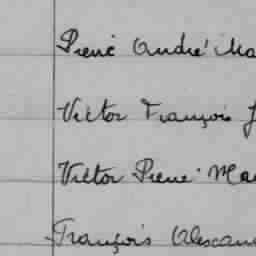 Pierre André Ma
Victor François J
Victor Pierre Ma
François Alexan